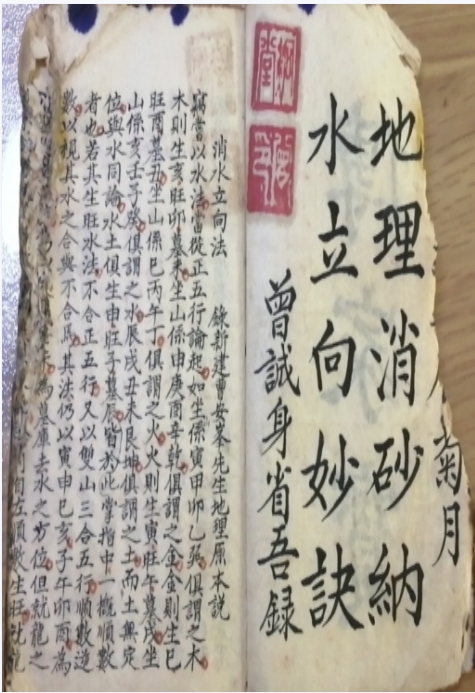 菊月
地理消砂納
水立向妙訣
曾誠身省吾錄
消水立向法　錄新建曹安峯先生地理原本說
竊嘗以水法當從正五行論起如坐係寅甲卯乙巽俱謂之木
木則生亥旺卯墓未坐山係申庚酉辛乾俱謂之金金則生巳
旺酉墓丑坐山係巳丙午丁俱謂之火火則生寅旺午墓戌坐
山係亥壬子癸俱謂之水辰戌丑未艮坤俱謂之土而土無定
位與水同論水土俱生申旺子墓辰皆於此掌指中一概順數
者也若其生旺水法不合正五行又以雙山三合五行順數逆
數以視其水之合與不合焉其法仍以寅申巳亥子午卯酉為
為墓庫去水之方位但就龍之
左順數生旺就龍